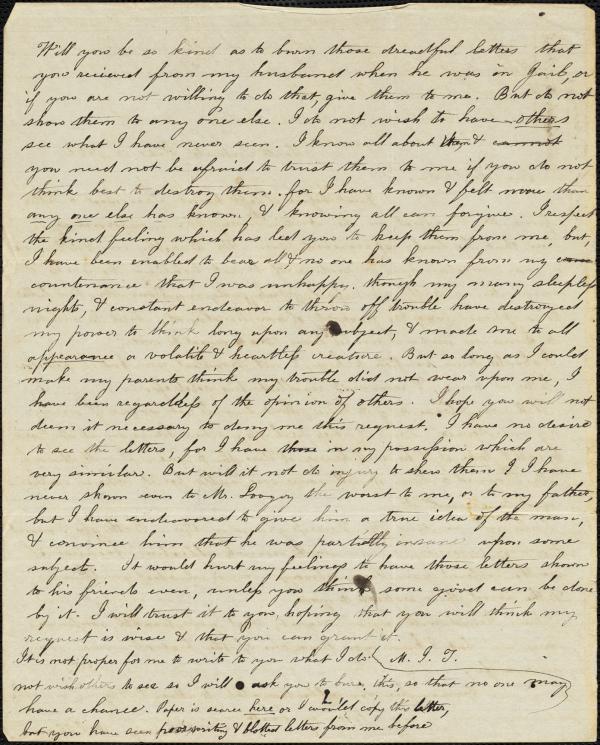 Will you be so kind as to burn those dreadful letters that
you recieved from my husband when he was in Gail, or
if you are not willing to do that, give them to me. But do not
show them to any one else. I do not wish to have others
see what I have never seen. I know all about them & cannot
you need not be afraid to trust them to me if you do not
think best to destroy them. for I have known & felt more than
any one else has known, & knowing all can forgive. I respect
the kind feeling which has led you to keep them from me, but,
I have been enabled to bear all & no one has known from my
countenance that I was unhappy. though my many sleepless
nights, & constant endeavor to throw off trouble have destroyed
my power to think long upon any subject, & made me to all
appearance a volatile & heartless creature. But so long as I could
make my parents think my trouble did not wear upon me, I
have been regardless of the opinion of others. I hope you will not
deem it necessary to deny me this request. I have no desire
to see the letters, for I have those in my possession which are
very similar. But will it not do injury to show them? I have
never shown even to Mr. the worst to me, or to my father,
but I have endeavored to give him a true idea of the man,
& convince him that he was partially insane upon some
subject. It would hurt my feelings to have those letters shown
to his friends even, unless you think some good can be done
by it. I will trust it to you, hoping that you will think my
request is wise & that you can grant it.
It is not proper for me to write to you what I do M. I. T.
not wish others to see so I will ask you to burn this, so that no one may
have a chance. Paper is scarce here or I would copy this letter,
but you have seen poor writing & blotted letters from me before